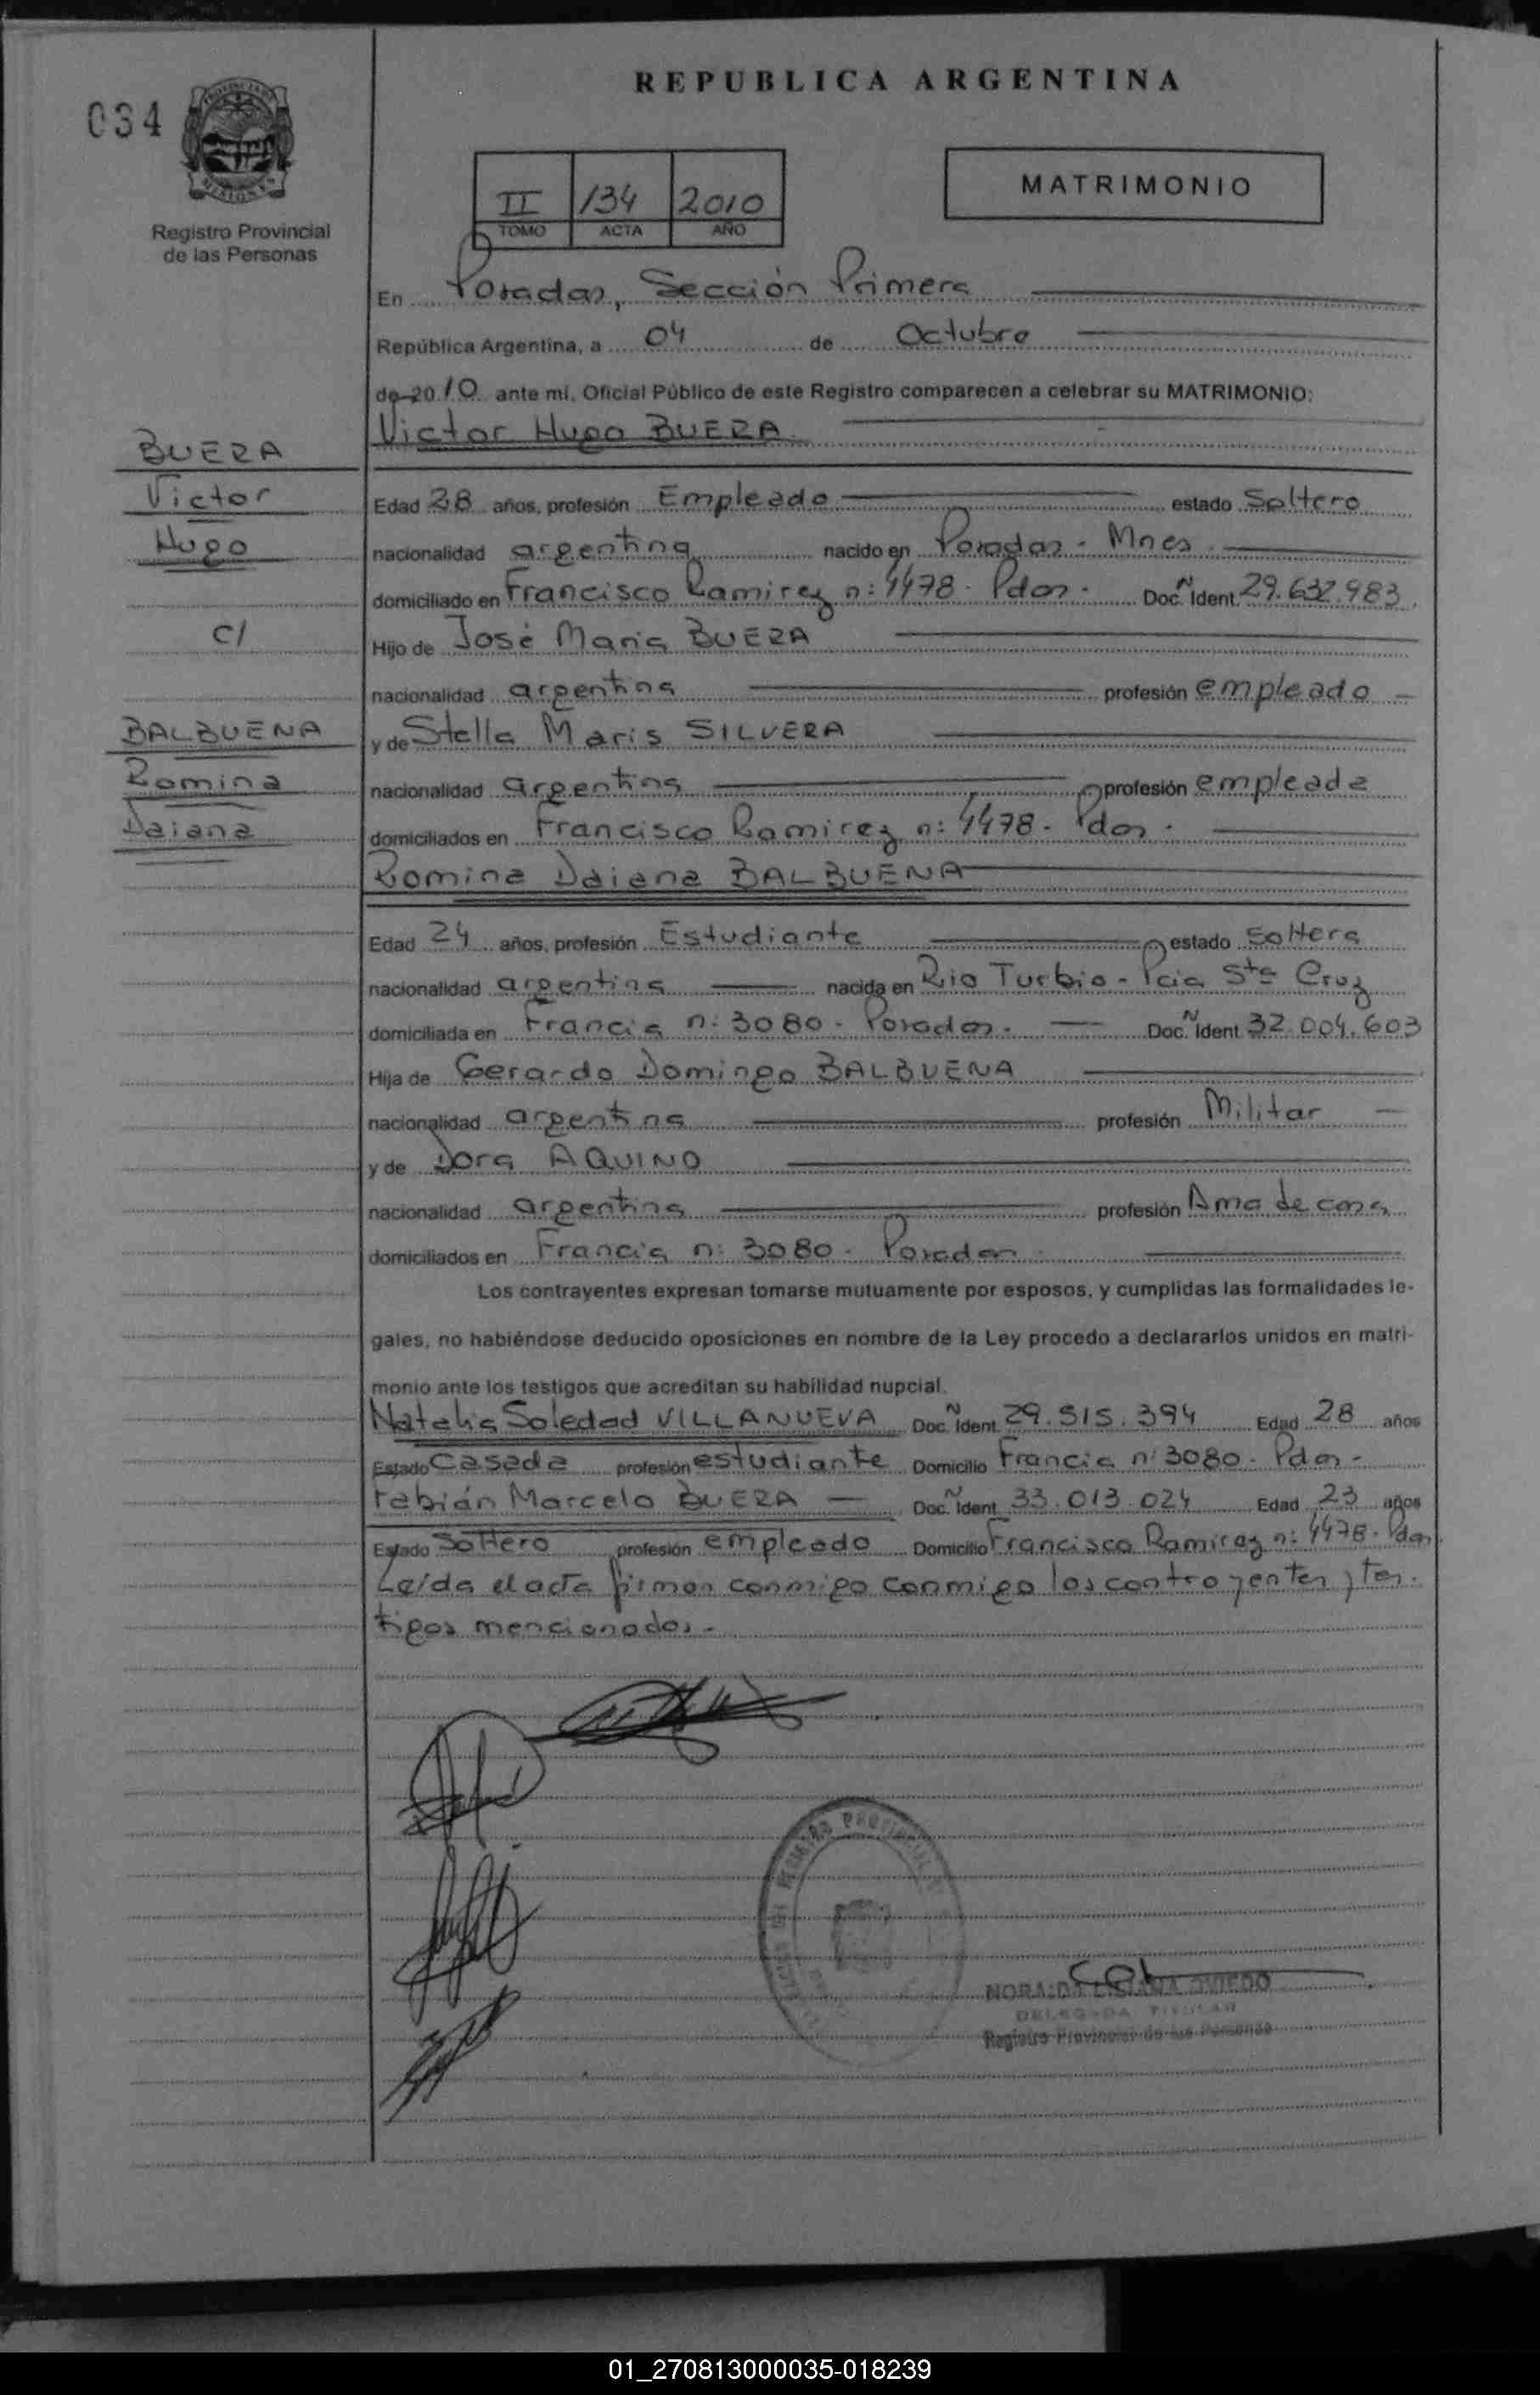 034
REPUBLICA ARGENTINA
II 134 2010
TOMO ACTA AÑO
MATRIMONIO
Registro Provincial
de las Personas
En Posadas, Sección Primera
República Argentina, a 04 de Octubre
de 2010 ante mí, Oficial Público de este Registro comparecen a celebrar su MATRIMONIO:
Victor Hugo BUERA
BUERA
Victor
Hugo
c/
BALBUENA
Romina
Daiana
Edad 28 años, profesión Empleado estado Soltero
nacionalidad argentina nacido en Posadas - Mnes
domiciliado en Francisco Ramirez n: 4478 - Pdas. Doc. Ñ Ident. 29.632.983
Hijo de José Maria BUERA
nacionalidad argentina profesión empleado
y de Stella Maris SILVERA
nacionalidad argentina profesión empleada
domiciliados en Francisco Ramirez n: 4478 - Pdas.
Romina Daiana BALBUENA
Edad 24 años, profesión Estudiante estado soltera
nacionalidad argentina nacida en Rio Turbio - Pcia Sta Cruz
domiciliada en Francia n: 3080 - Posadas. Doc. Ñ Ident 32.004.603
Hija de Gerardo Domingo BALBUENA
nacionalidad argentina profesión Militar
y de Dora AQUINO
nacionalidad argentina profesión Ama de casa
domiciliados en Francia n: 3080 - Posadas.
Los contrayentes expresan tomarse mutuamente por esposos, y cumplidas las formalidades le-
gales, no habiéndose deducido oposiciones en nombre de la Ley procedo a declararlos unidos en matri-
monio ante los testigos que acreditan su habilidad nupcial.
Natalia Soledad VILLANUEVA Doc. Ñ Ident. 29.515.394 Edad 28 años
Estado Casada profesión estudiante Domicilio Francia n: 3080 - Pdas -
Fabián Marcelo BUERA Doc. Ñ Ident. 33.013.024 Edad 23 años
Estado Soltero profesión empleado Domicilio Francisco Ramirez n: 4478 - Pdas
Leída el acta firman conmigo conmigo los contrayentes y tes-
tigos mencionados -
REGISTRO PROVINCIAL
OVIEDO
DELEGADA TITULAR
Registro Provincial de las Personas
01_270813000035-018239